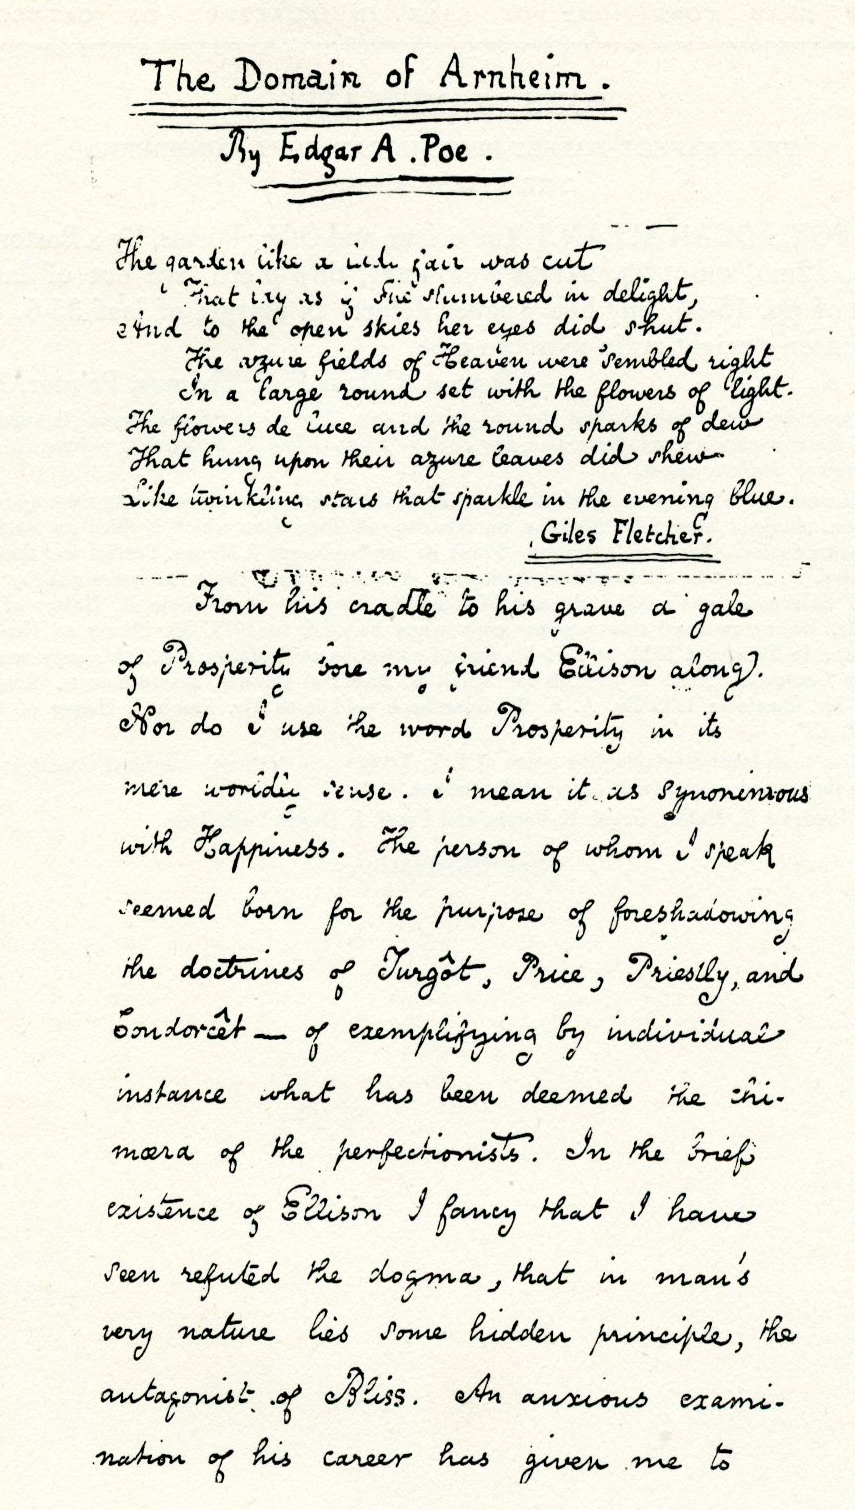 The Domain of Arnheim.
By Edgar A. Poe.
The garden like a lady fair was cut
That lay as if she slumbered in delight,
And to the open skies her eyes did shut.
The azure fields of Heaven were 'sembled right
In a large round set with the flowers of light.
The flowers de luce and the round sparks of dew
That hung upon their azure leaves did shew
Like twinkling stars that sparkle in the evening blue.
Giles Fletcher.
From his cradle to his grave a gale
of Prosperity bore my friend Ellison along.
Nor do I use the word Prosperity in its
mere worldly sense. I mean it as synonimous
with Happiness. The person of whom I speak
seemed born for the purpose of foreshadowing
the doctrines of Turgôt, Price, Priestly, and
Condorcêt — of exemplifying by individual
instance what has been deemed the chi-
mæra of the perfectionists. In the brief
existence of Ellison I fancy that I have
seen refuted the dogma, that in man's
very nature lies some hidden principle, the
antagonist of Bliss. An anxious exami-
nation of his career has given me to